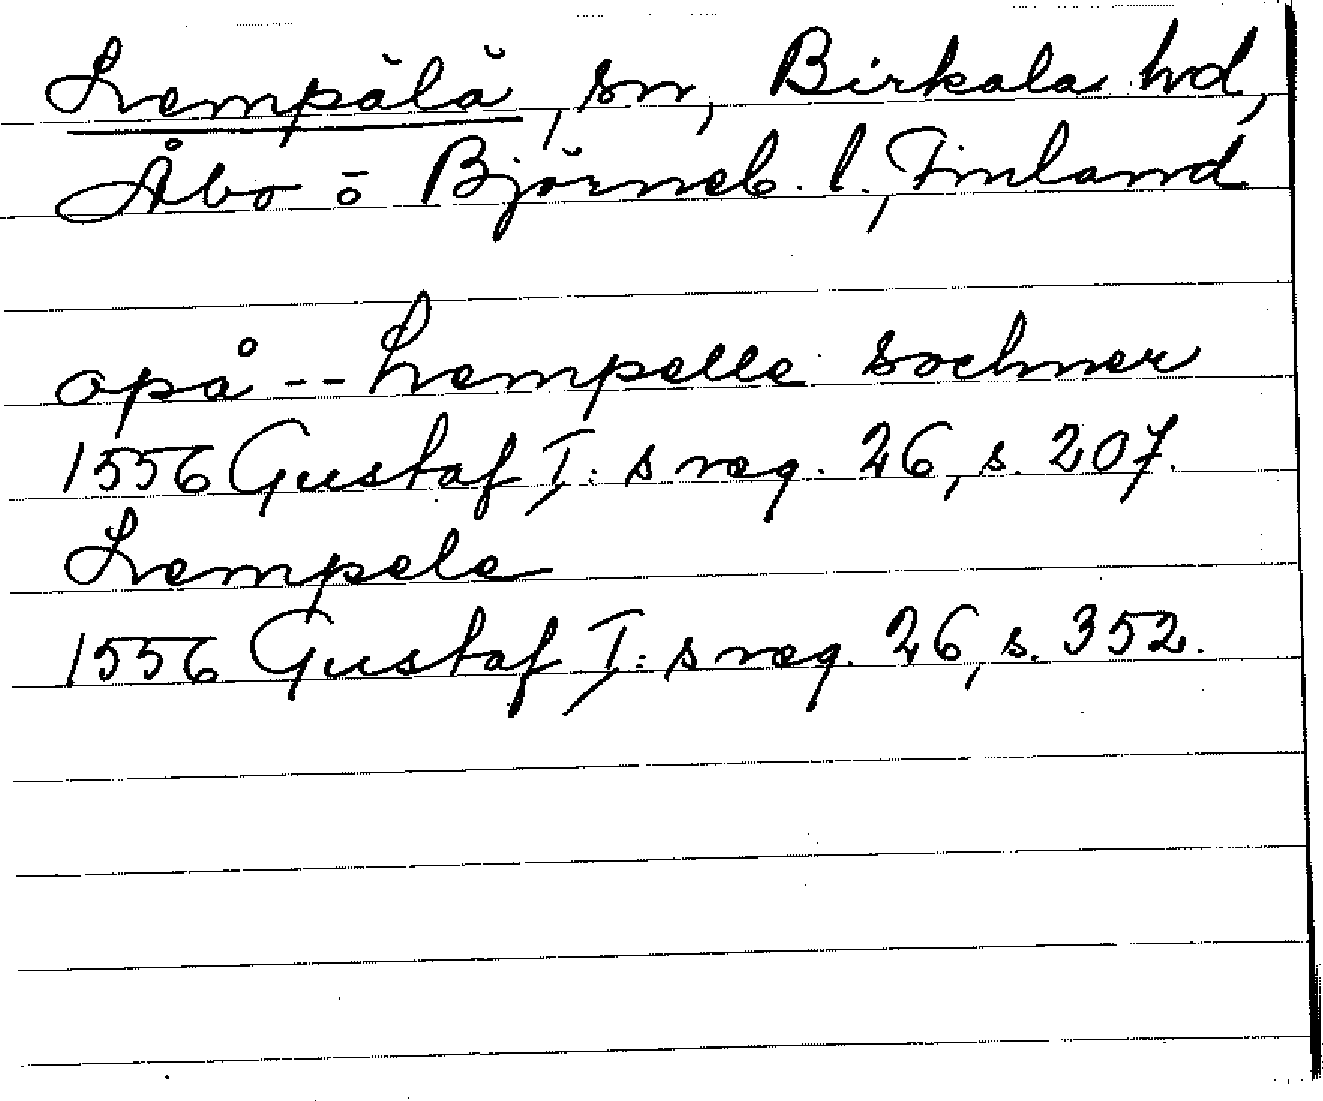 Lempälä, sn, Birkala hd,
Åbo o Björneb. l., Finland
opå -- Lempelle sochner
1556 Gustaf I:s reg. 26, s. 207.
Lempele
1556 Gustaf I:s reg. 26, s. 352.